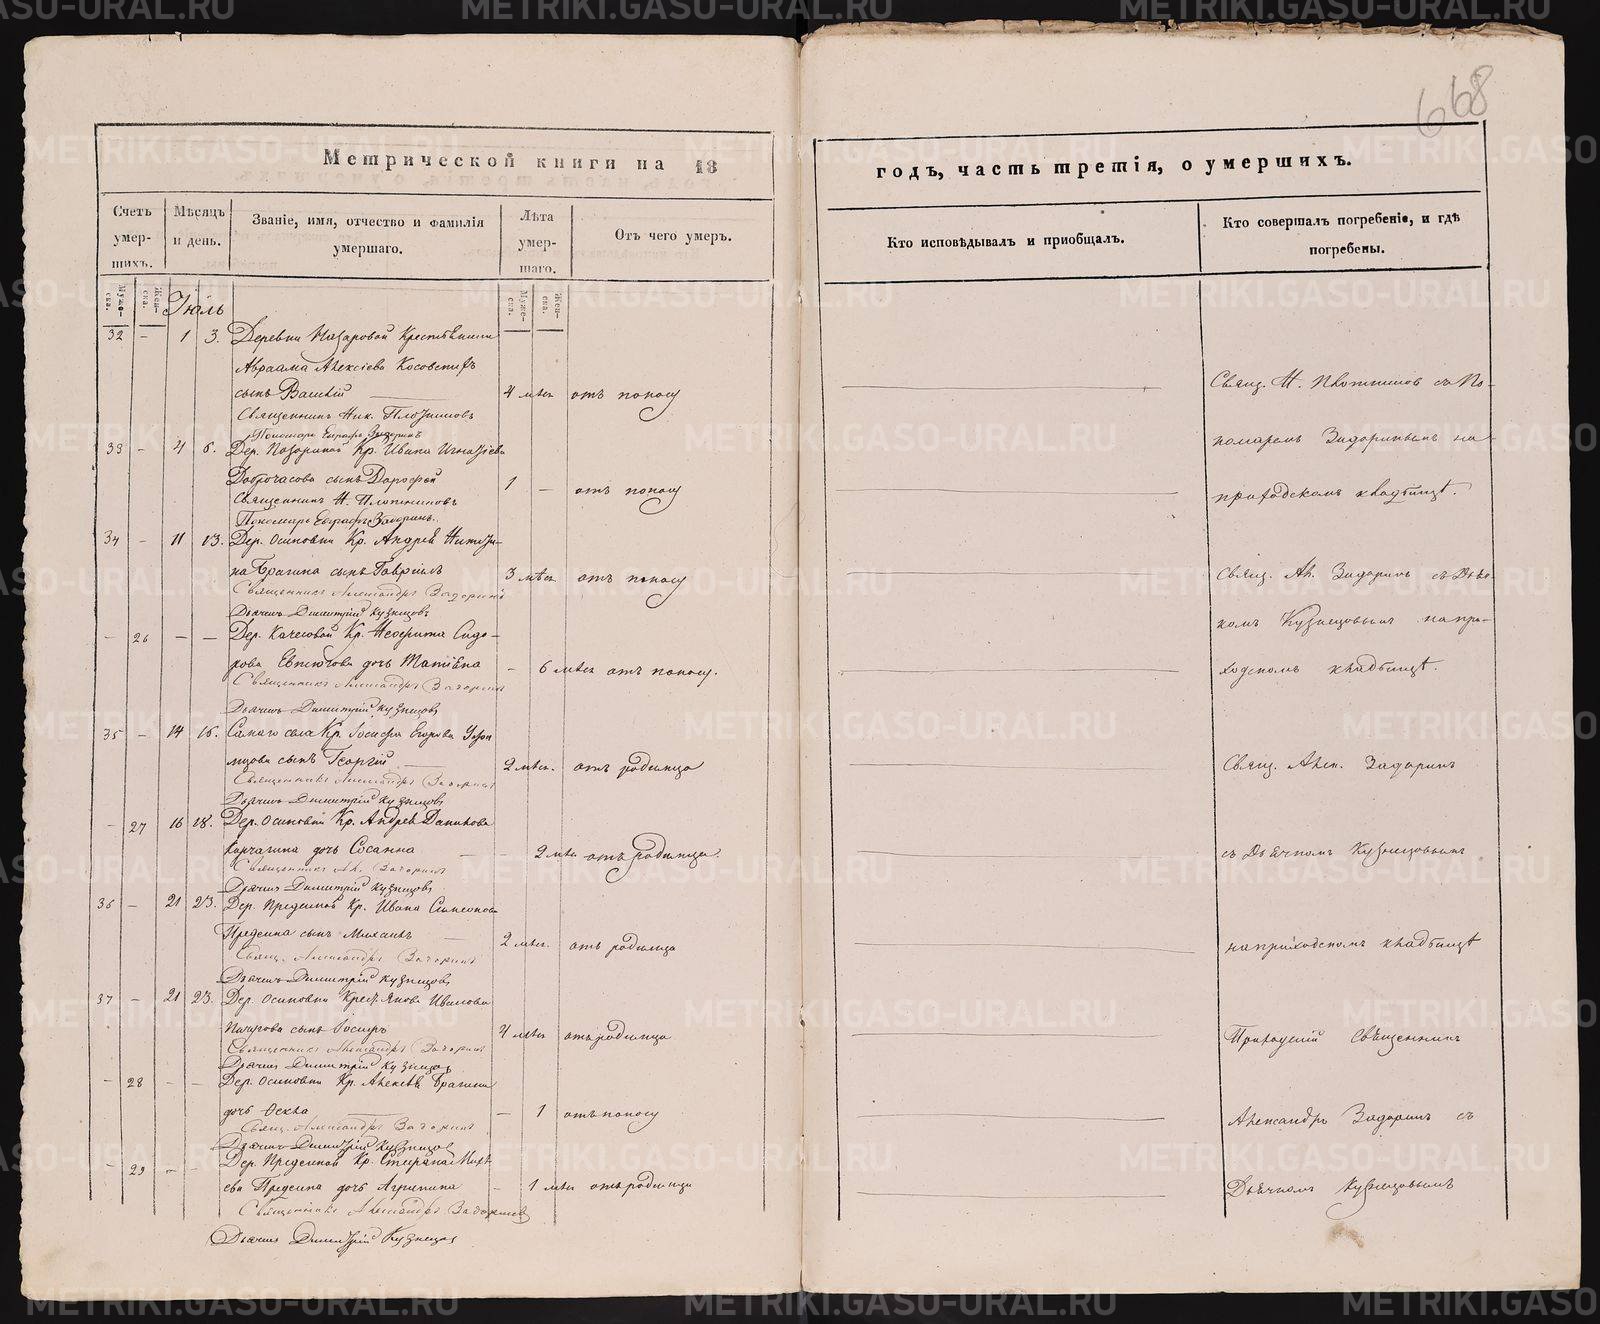 668
Метрической книги на 18
годъ, часть третія, о умершихъ.
Счетъ умер-шихъ.
Мѣсяцъ и день.
Званіе, имя, отчество и фамилія умершаго.
Лѣта умер-шаго.
Отъ чего умеръ.
Кто исповѣдывалъ и пріобщалъ.
Кто совершалъ погребеніе, и гдѣ погребены.
Муже-ска.
Жен-ска.
Муже-ска.
Жен-ска.
Іюль
32 – 1 3. Деревни Назаровой Крестьянина
Авраама Алексіева
сынъ Василій 4 мѣс. отъ поносу
Священникъ Ник. Плотниковъ
Пономарь Евграфъ Задоринъ
33 – 4 6. Дер. Кр. Ивана Игнатіева
Доброчасова сынъ Дорофей 1 – отъ поносу
Священникъ Н. Плотниковъ
Пономарь Евграфъ Задоринъ.
34 – 11 13. Дер. Осиновки Кр. Андрея Никити-
на Брагина сынъ Гавріилъ 3 мѣс. отъ поносу
Священникъ Александръ Задоринъ
Дьячекъ Димитрій Кузнецовъ
– 26 – – Дер. Качесовой Кр. Неофита Сидо-
рова дочь 6 мѣс. отъ поносу.
Священникъ Александръ Задоринъ
Дьячекъ Димитрій Кузнецовъ
35 – 14 16. Самаго села Кр. Іосифа Егорова
сынъ Георгій 2 мѣс. отъ родимца
Священникъ Александръ Задоринъ
Дьячекъ Димитрій Кузнецовъ
– 27 16 18. Дер. Осиновки Кр. Андрея Данилова
Корчагина дочь Сосанна 2 мѣс. отъ родимца.
Священникъ Ал. Задоринъ
Дьячекъ Димитрій Кузнецовъ
36 – 21 23. Дер. Предеиной Кр. Ивана Симеонова
Предеина сынъ Михаилъ 2 мѣс. отъ родимца
Свящ. Александръ Задоринъ
Дьячекъ Димитрій Кузнецовъ
37 – 21 23. Дер. Осиновки Крест. Якова Иванова
сынъ Іосифъ 4 мѣс. отъ родимца
Священникъ Александръ Задоринъ
Дьячекъ Димитрій Кузнецовъ
– 28 – – Дер. Осиновки Кр. Алексѣя Брагина
дочь Ѳекла – 1 отъ поносу
Свящ. Александръ Задоринъ
Дьячекъ Димитрій Кузнецовъ
– 29 – – Дер. Предеиной Кр. Стефана
Предеина дочь Агрипина – 1 мѣс. отъ родимца
Священникъ Александръ Задоринъ
Дьячекъ Димитрій Кузнецовъ
Свящ. Н. Плотниковъ съ По-
номаремъ Задоринымъ на
приходскомъ кладбищѣ.
Свящ. Ал. Задоринъ съ Дьяч-
комъ Кузнецовымъ на при-
ходскомъ кладбищѣ.
Свящ. Алек. Задоринъ
съ Дьячкомъ Кузнецовымъ
на приходскомъ кладбищѣ
Приходскій Священникъ
Александръ Задоринъ съ
Дьячкомъ Кузнецовымъ
METRIKI.GASO-URAL.RU